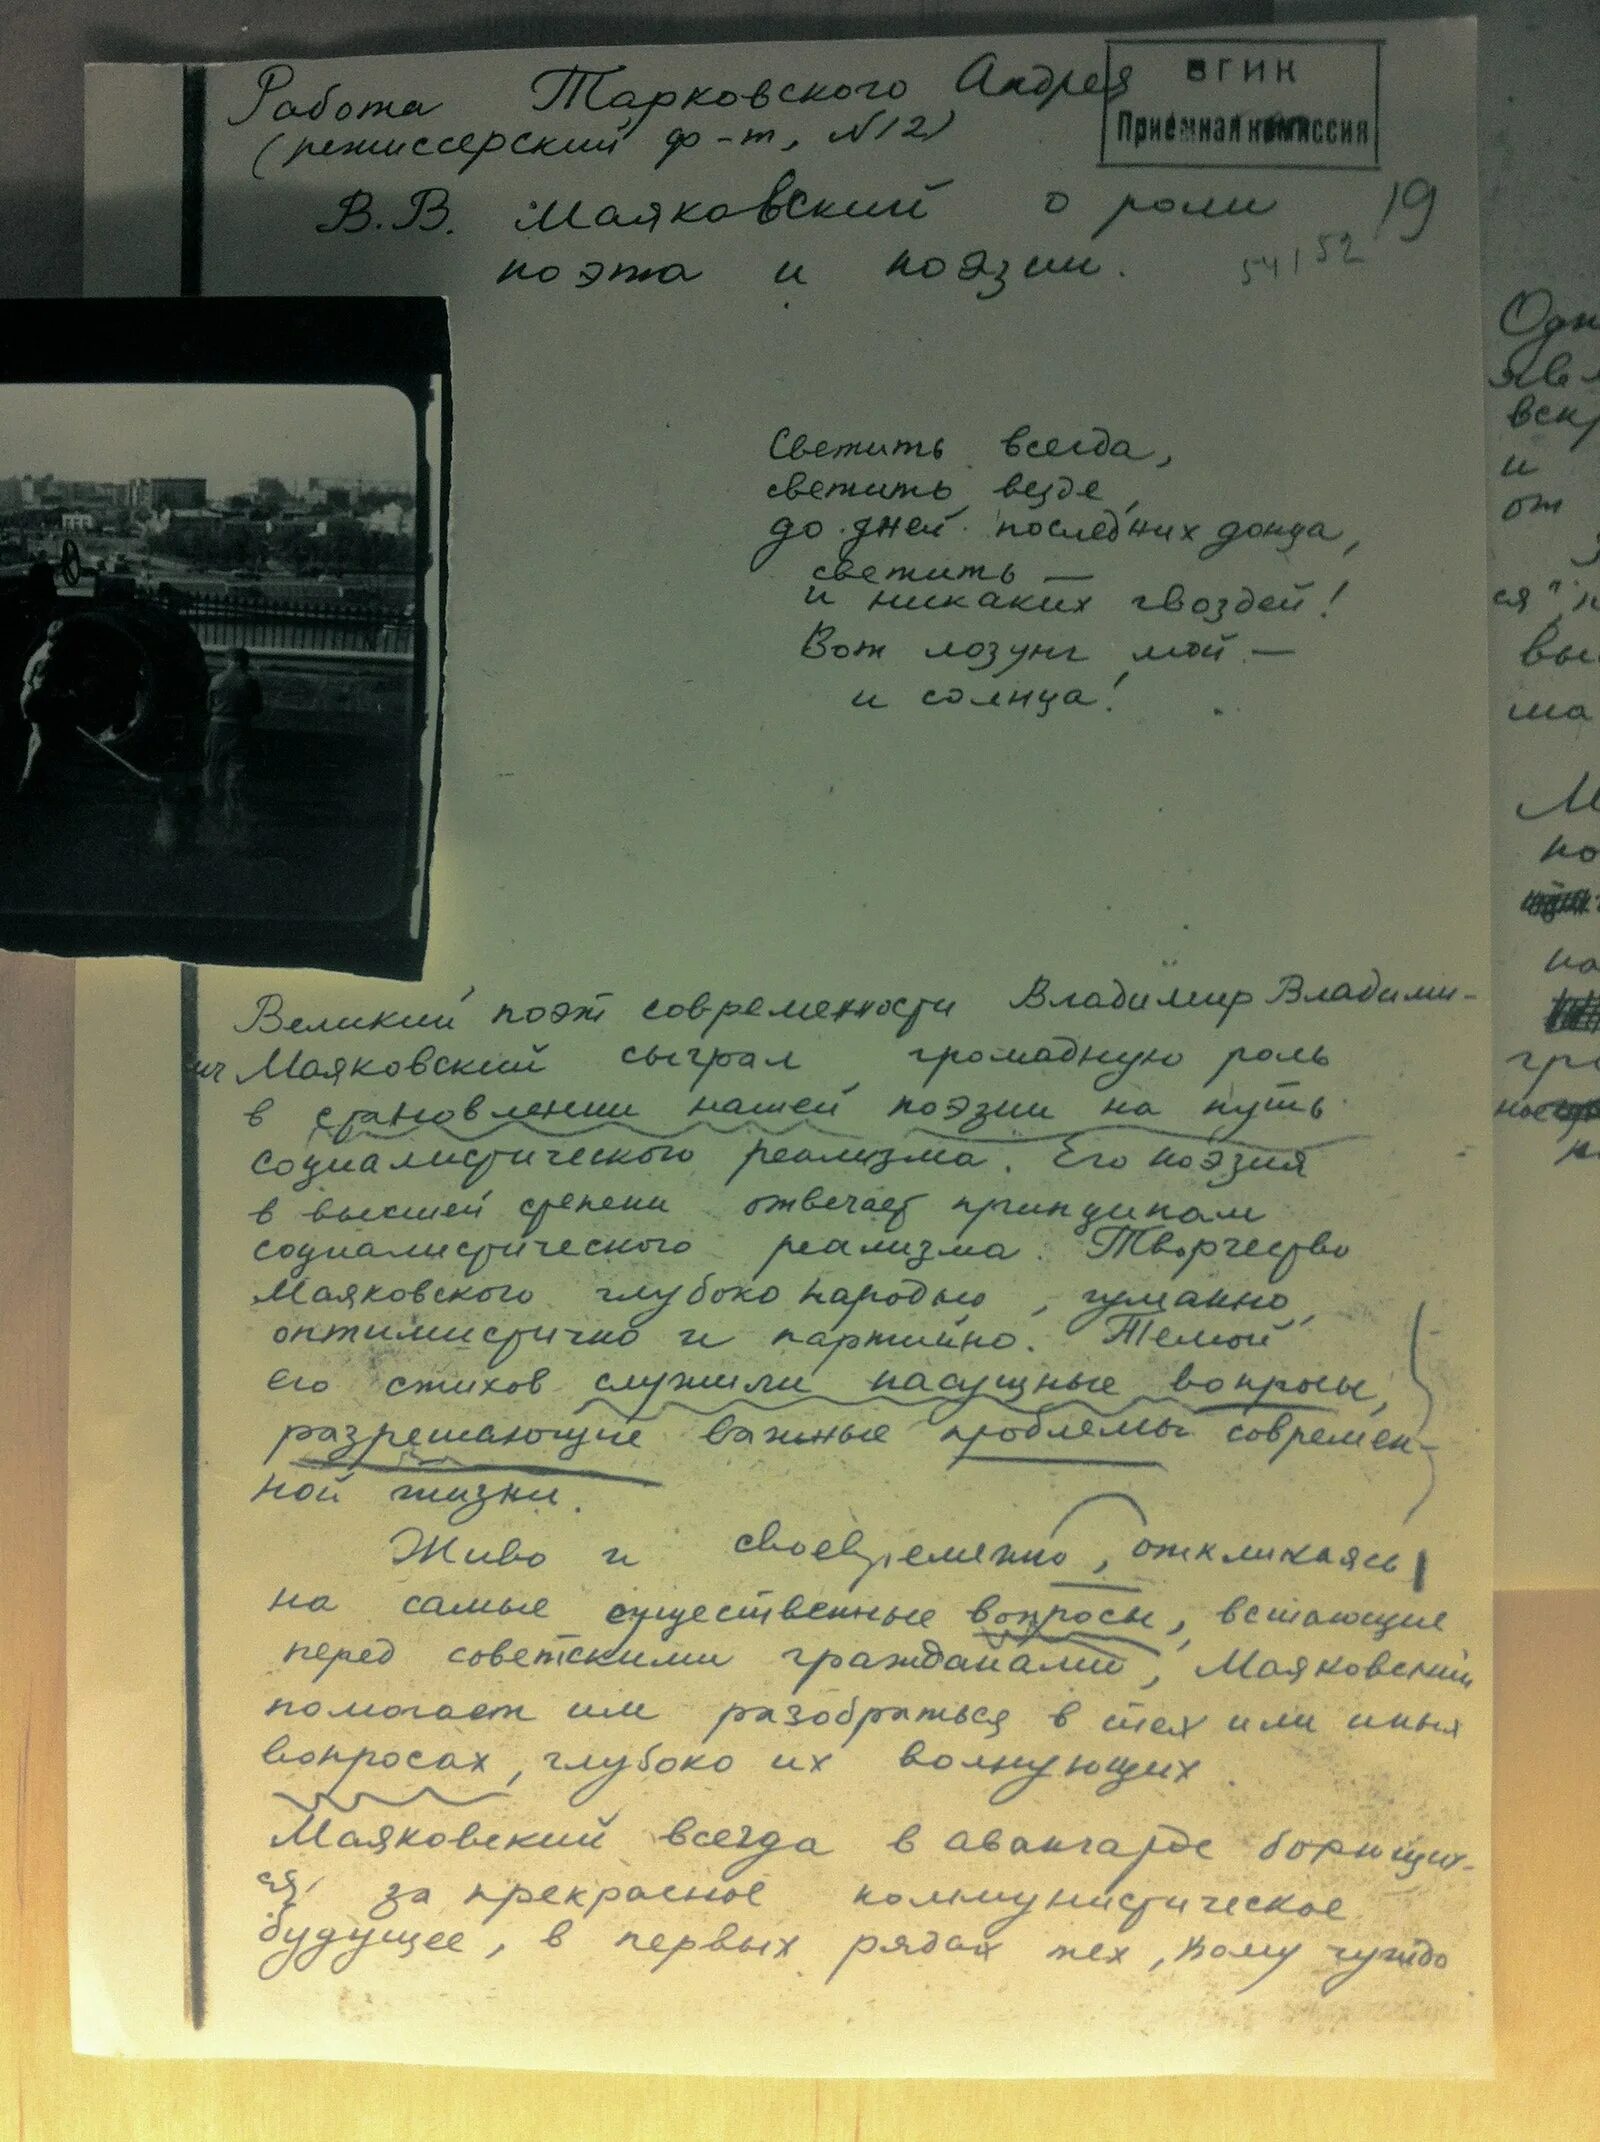 Работа Тарковского Андрея
ВГИК
Приёмная комиссия
(режиссерский ф-т, N12)
В.В. Маяковский о роли
19
поэта и поэзии.
54/52
Светить всегда,
светить везде,
до дней последних донца,
светить —
и никаких гвоздей!
Вот лозунг мой —
и солнца!
Великий поэт современности Владимир Владими-
ич Маяковский сыграл громадную роль
в становлении нашей поэзии на путь
социалистического реализма. Его поэзия
в высшей степени отвечает принципам
социалистического реализма. Творчество
Маяковского глубоко народно, гуманно,
оптимистично и партийно. Темой
его стихов служили насущные вопросы,
разрешающие важные проблемы современ-
ной жизни.
Живо и своевременно, откликаясь
на самые существенные вопросы, встающие
перед советскими гражданами, Маяковский
помогает им разобраться в тех или иных
вопросах, глубоко их волнующих.
Маяковский всегда в авангарде борющих-
ся за прекрасное коммунистическое
будущее, в первых рядах тех, кому чуждо
Одн
явл
вскр
и
от
ся" н
вы
ша
М
но
на
гр